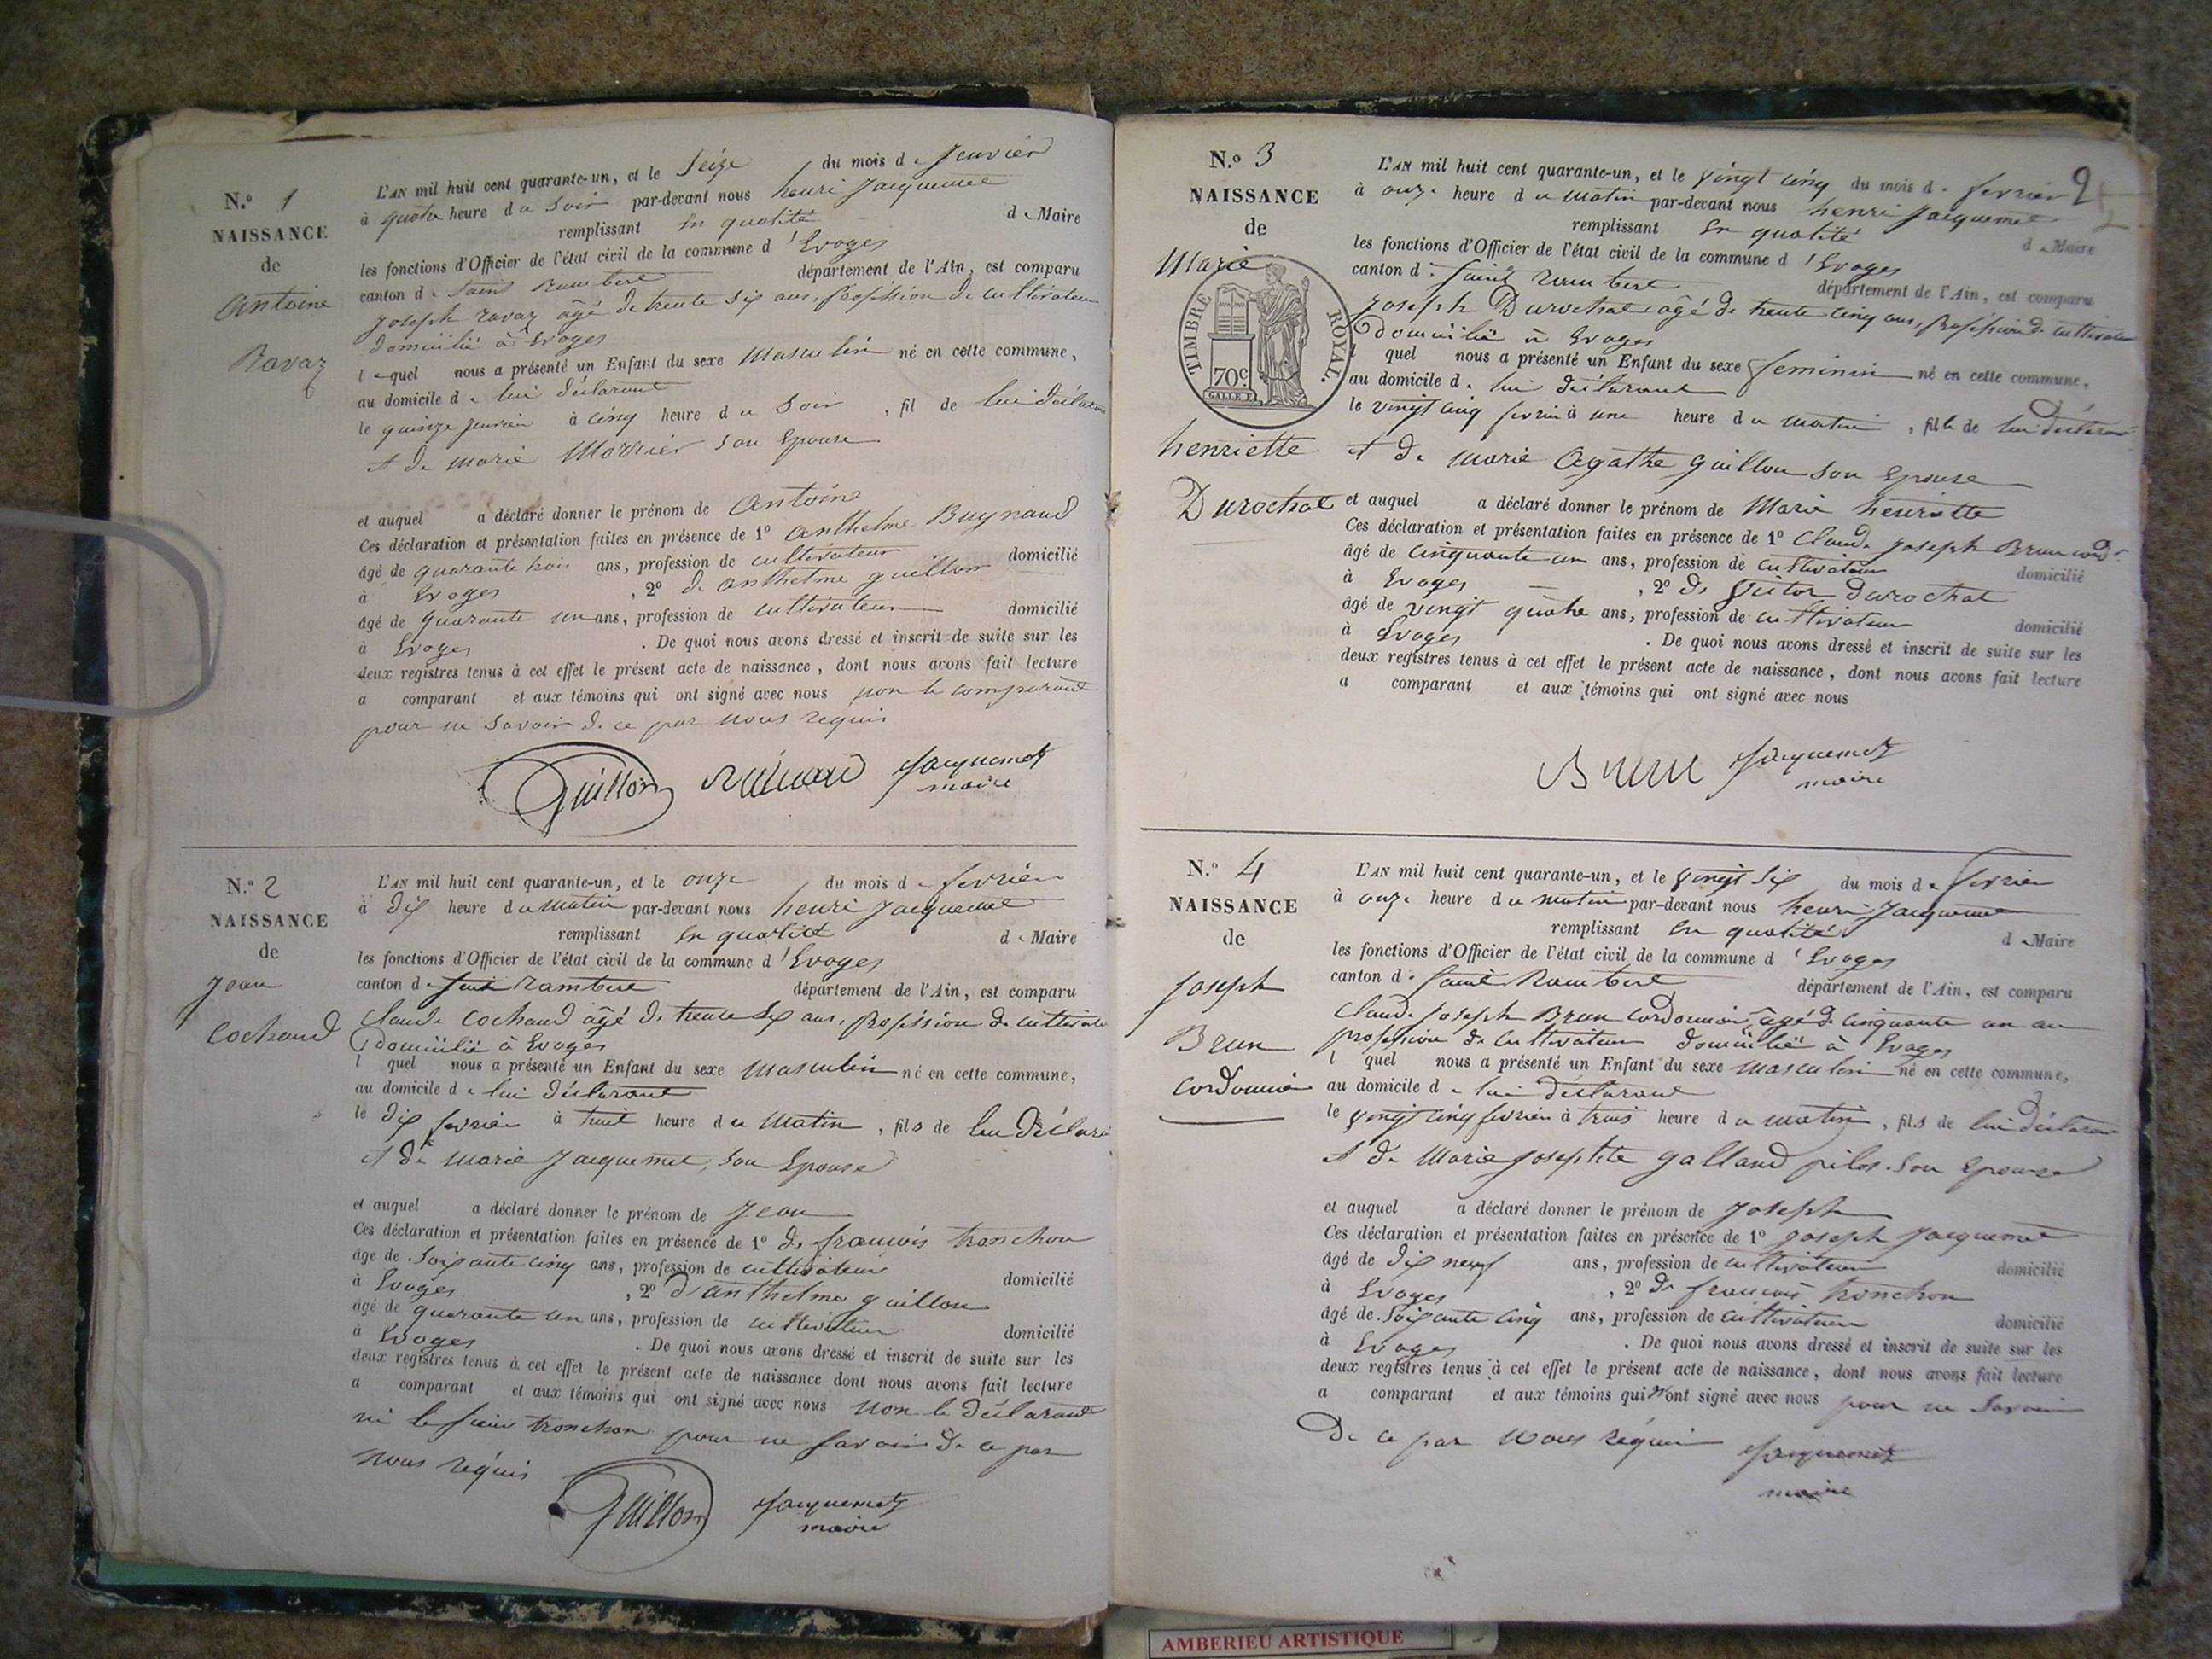 N.º 1
NAISSANCE
de
Antoine
Ravaz
L'AN mil huit cent quarante-un, et le Seize du mois de Jenvier
à quatre heure du Soir par-devant nous henri Jacquemet
remplissant en qualité de Maire
les fonctions d'Officier de l'état civil de la commune d'Evoges
canton de Saint Rambert département de l'Ain, est comparu
Joseph ravaz âgé de trente Six ans, profession de cultivateur
domicilié à Evoges
lequel nous a présenté un Enfant du sexe Masculin né en cette commune,
au domicile de lui déclarant
le quinze jenvier à cinq heure du Soir, fil de lui déclarant
et de marie son Epouse
et auquel a déclaré donner le prénom de Antoine
Ces déclaration et présentation faites en présence de 1º anthelme
âgé de quarante trois ans, profession de cultivateur domicilié
à Evoges, 2º de anthelme guillon
âgé de quarante un ans, profession de cultivateur domicilié
à Evoges. De quoi nous avons dressé et inscrit de suite sur les
deux registres tenus à cet effet le présent acte de naissance, dont nous avons fait lecture
a comparant et aux témoins qui ont signé avec nous non le comparant
pour ne savoir de ce par nous requis
Guillon Jacquemet
maire
N.º 2
NAISSANCE
de
Jean
Cochaud
L'AN mil huit cent quarante-un, et le onze du mois de fevrier
à dix heure du Matin par-devant nous henri Jacquemet
remplissant en qualité de Maire
les fonctions d'Officier de l'état civil de la commune d'Evoges
canton de Saint Rambert département de l'Ain, est comparu
Claude Cochaud âgé de trente Six ans, profession de cultivateur
domicilié à Evoges
l quel nous a présenté un Enfant du sexe Masculin né en cette commune,
au domicile de lui déclarant
le dix fevrier à huit heure du Matin, fils de lui déclarant
et de marie Jacquemet, son Epouse
et auquel a déclaré donner le prénom de Jean
Ces déclaration et présentation faites en présence de 1º de francois tronchon
âgé de Soixante cinq ans, profession de cultivateur domicilié
à Evoges, 2º d'anthelme guillon
âgé de quarante un ans, profession de cultivateur domicilié
à Evoges. De quoi nous avons dressé et inscrit de suite sur les
deux registres tenus à cet effet le présent acte de naissance dont nous avons fait lecture
a comparant et aux témoins qui ont signé avec nous non le déclarant
ni le sieur tronchon pour ne savoir de ce par
nous réquis
Guillon Jacquemet
maire
2
N.º 3
NAISSANCE
de
Marie
TIMBRE ROYAL.
70c.
henriette
Durochat
L'AN mil huit cent quarante-un, et le vingt cinq du mois de fevrier
à onze heure du matin par-devant nous henri Jacquemet
remplissant en qualité de Maire
les fonctions d'Officier de l'état civil de la commune d'Evoges
canton de Saint Rambert département de l'Ain, est comparu
Joseph Durochat âgé de trente cinq ans, profession de cultivateur
domicilié à Evoges
l quel nous a présenté un Enfant du sexe feminin né en cette commune,
au domicile de lui déclarant
le vingt cinq fevrier à une heure du matin, fille de lui déclarant
et de marie Agathe guillon son Epouse
et auquel a déclaré donner le prénom de Marie henriette
Ces déclaration et présentation faites en présence de 1º Claude Joseph Brun
âgé de cinquante un ans, profession de cultivateur domicilié
à Evoges, 2º de Victor durochat
âgé de vingt quatre ans, profession de cultivateur domicilié
à Evoges. De quoi nous avons dressé et inscrit de suite sur les
deux registres tenus à cet effet le présent acte de naissance, dont nous avons fait lecture
a comparant et aux témoins qui ont signé avec nous
Brun Jacquemet
maire
N.º 4
NAISSANCE
de
Joseph
Brun
Cordonnier
L'AN mil huit cent quarante-un, et le vingt Six du mois de fevrier
à onze heure du matin par-devant nous henri Jacquemet
remplissant en qualité de Maire
les fonctions d'Officier de l'état civil de la commune d'Evoges
canton de Saint Rambert département de l'Ain, est comparu
Claude Joseph Brun Cordonnier âgé de cinquante un an
profession de cultivateur domicilié à Evoges
l quel nous a présenté un Enfant du sexe masculin né en cette commune,
au domicile de lui déclarant
le vingt cinq fevrier à trois heure du matin, fils de lui déclarant
et de Marie Josephte galland pilos son Epouse
et auquel a déclaré donner le prénom de Joseph
Ces déclaration et présentation faites en présence de 1º Joseph Jacquemet
âgé de dix neuf ans, profession de cultivateur domicilié
à Evoges, 2º de francois tronchon
âgé de Soixante cinq ans, profession de cultivateur domicilié
à Evoges. De quoi nous avons dressé et inscrit de suite sur les
deux registres tenus à cet effet le présent acte de naissance, dont nous avons fait lecture
a comparant et aux témoins qui n'ont signé avec nous pour ne savoir
de ce par nous réquis Jacquemet
maire
AMBERIEU ARTISTIQUE